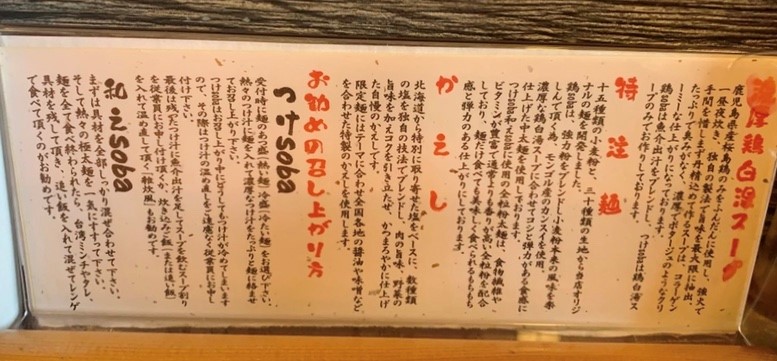 濃厚鶏白湯スープ
鹿児島県産桜島鶏のみをふんだんに使用し、強火で
一昼夜炊き、独自の製法で旨味を最大限に抽出。
手間を惜しまず丹精込めて作るスープは、コラーゲン
たっぷりで臭みがなく、濃厚でポタージュのようなクリ
ーミーな仕上がりになっております。つけsobaは鶏白湯ス
鶏sobaは魚介出汁をブレンドし、
ープのみでお作りしております。
特注麺
十五種類の小麦粉と、三十種類の生地から当店オリジ
ナルの麺を開発しました。
鶏sobaは、強力粉をブレンドし小麦粉本来の風味を楽
しんで頂く為、モンゴル産のカンスイを使用。
濃厚な鶏白湯スープに合わせてコシと弾力がある食感に
仕上げた中太麺を使用しております。
つけsoba和えsobaに使用の全粒粉太麺は、食物繊維や
ビタミンが豊富で通常よりも香りが高い全粒粉を配合
しており、麺だけ食べても美味しく食べられるもちもち
感と弾力のある仕上がりにしております。
かえし
北海道から特別に取り寄せた塩をベースに、数種類
の塩を独自の技法でブレンドし、肉の旨味、野菜の
旨味を加えコクを引き立たせ、かつまろやかに仕上げ
た自慢のかえしです。
限定麺にはテーマに合わせ全国各地の醤油や味噌など
を合わせた特製のかえしを使用します。
お勧めの召し上がり方
つけsoba
受付時に麺のあつ盛(熱い麺)・冷盛(冷たい麺)をお選び下さい。
熱々のつけ汁に麺を入れて濃厚なつけ汁をたっぷりと麺に絡ませ
てお召し上がり下さい。
つけsobaはお召し上がり中にどうしてもつけ汁が冷めてしまいます
ので、その際はつけ汁の温め直しをご遠慮なく従業員にお申し
付け下さい。
最後は残ったつけ汁に魚介出汁を足してスープを飲む(スープ割り
を従業員にお申し付け頂く)か、炊き込みご飯(または追い飯)
を入れて温め直して頂く「雑炊風」もお勧めです。
和えsoba
まずは具材を全部しっかり混ぜ合わせて下さい。
そして熱々の極太麺を一気にすすって下さい。
麺を全て食べ終わられたら、台湾ミンチやタレ、
具材を残して頂き、追い飯を入れて混ぜてレンゲ
で食べて頂くのがお勧めです。